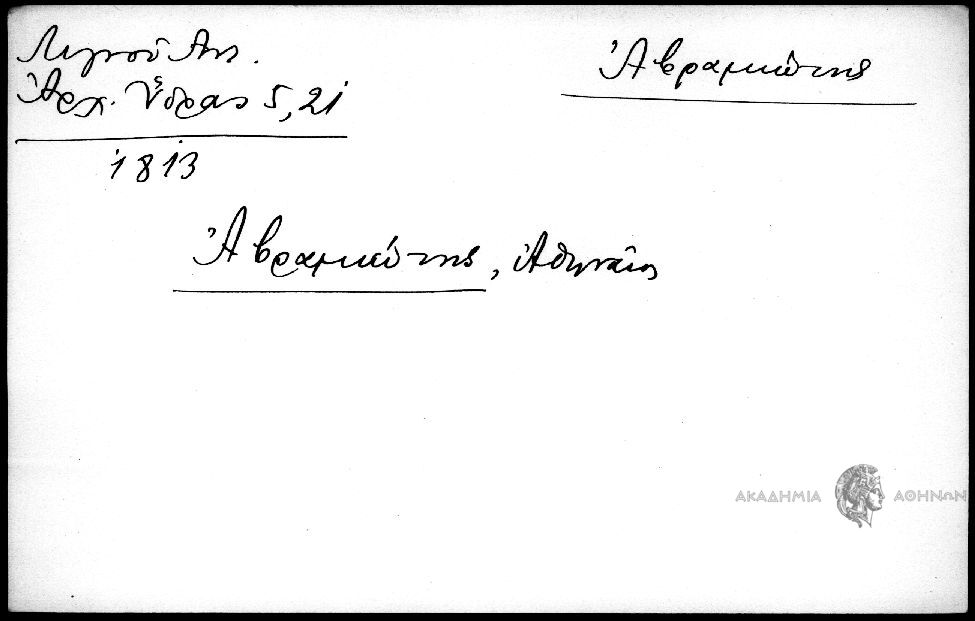 Λιγνοῦ Ἀντ.
Ἀρχ. Ὕδρας 5,21
1813
Ἀβραμιώτης
Ἀβραμιώτης, Ἀθηναῖος
ΑΚΑΔΗΜΙΑ ΑΘΗΝΩΝ